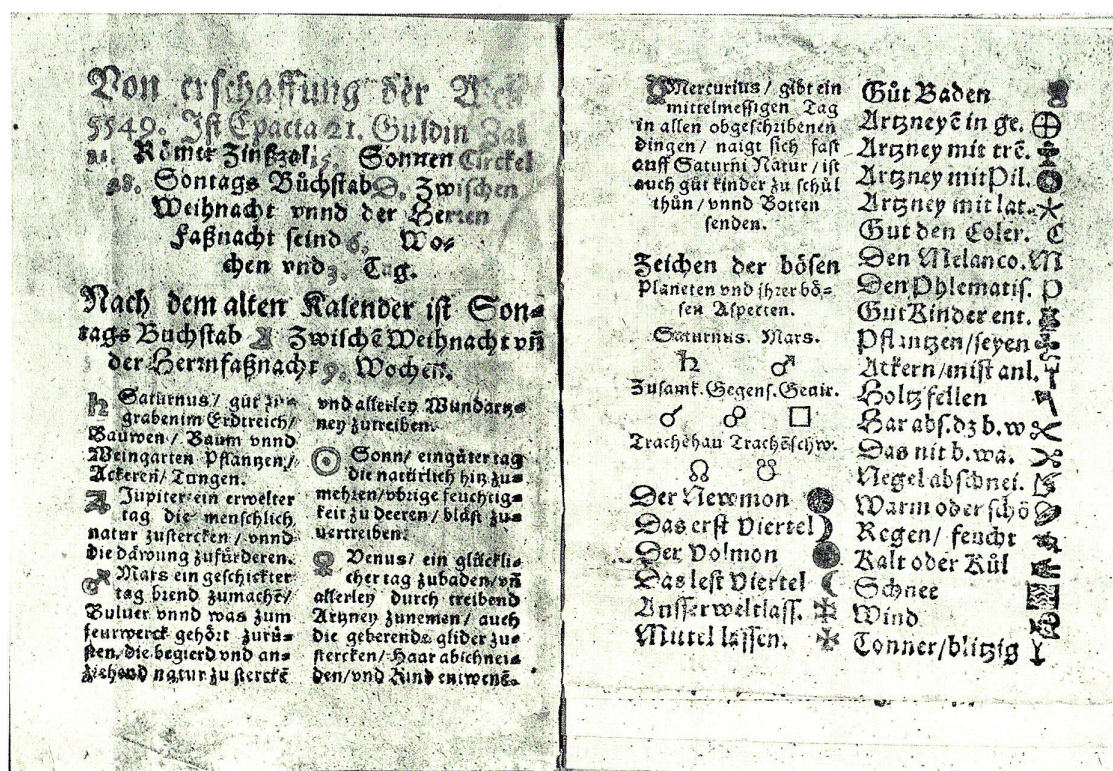 Von erschaffung der Welt
5549. Ist Epacta 21. Guldin Zal
Römer Zinßzal 15. Sonnen Circkel
28. Sontags Bůchstab D. Zwischen
Weihnacht vnnd der Herren
Faßnacht seind 6. Wo-
chen vnd 3. Tag.
Nach dem alten Kalender ist Son-
tags Buchstab Zwischē Weihnacht vñ
der Herrnfaßnacht 9. Wochen.
♄ Saturnus / gůt zů
grabenim Erdtreich /
Bauwen / Baum vnnd
Weingarten Pflantzen /
Ackeren / Tungen.
♃ Jupiter ein erwelter
tag die menschlich
natur zustercken / vnnd
die däwung zufürderen.
♂ Mars ein geschickter
tag brend zumachē /
Buluer vnnd was zum
feurwerck gehört zurü-
sten, die begierd vnd an-
ziehend natur zu sterckē
vnd allerley Wundartz-
ney zutreiben.
☉ Sonn / ein gůter tag
die natürlich hitz zu-
mehren / vbrige feuchtig-
keit zu deeren / bläst zu-
uertreiben.
♀ Venus / ein glückli-
cher tag zubaden / vñ
allerley durch treibend
Artzney zunemen / auch
die geberende glider zu-
stercken / Haar abschnei-
den / vnd Kind entwenē.
☿ Mercurius / gibt ein
mittelmessigen Tag
in allen obgeschribenen
dingen / naigt sich fast
auff Saturni Natur / ist
auch gůt kinder zu schůl
thůn / vnnd Botten
senden.
Zeichen der bösen
Planeten vnd ihrer bö-
sen Aspecten.
Saturnus. Mars.
♄ ♂
Zusamk. Gegens. Geuir.
☌ ☍ □
Trachēhau Trachēschw.
☊ ☋
Der Newmon
Das erst Viertel
Der Volmon
Das lest Viertel
Ausserweltlass.
Mittel lassen.
Gůt Baden
Artzneyē in ge.
Artzney mit trē.
Artzney mit Pil.
Artzney mit lat.
Gut den Coler. C
Den Melanco. M
Den Phlematis. P
Gut Kinder ent.
Pflantzen / seyen
Ackern / mist anl.
Holtz fellen
Har abs. dz b. w
Das nit b. wa.
Negel abschnei.
Warm oder schö
Regen / feucht
Kalt oder Kůl
Schnee
Wind
Tonner / blitzig